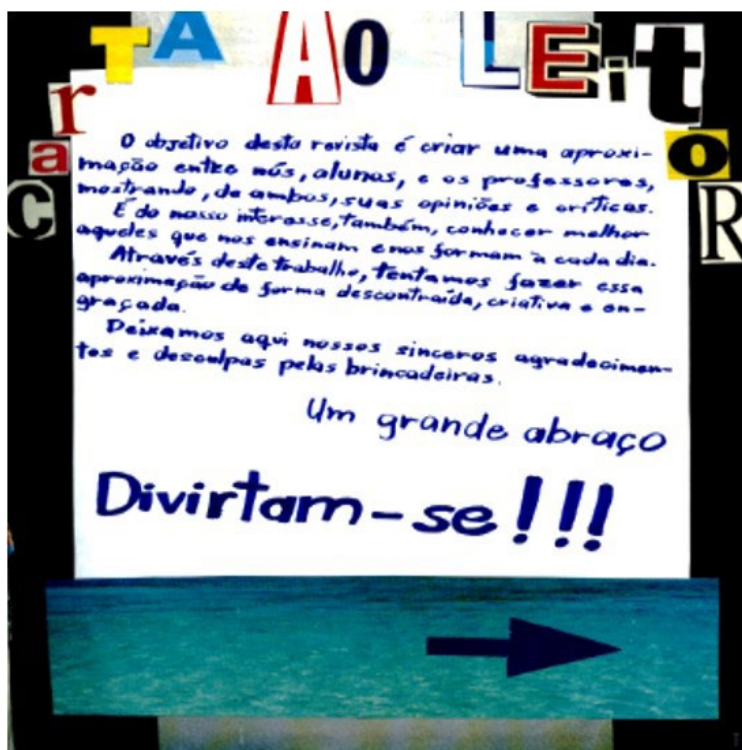 CarTA AO LEitoR
O objetivo desta revista é criar uma aproxi-
mação entre nós, alunos, e os professores,
mostrando, de ambos, suas opiniões e críticas.
É do nosso interesse, também, conhecer melhor
aqueles que nos ensinam e nos formam à cada dia.
Através deste trabalho, tentamos fazer essa
aproximação de forma descontraída, criativa e en-
graçada.
Deixamos aqui nossos sinceros agradecimen-
tos e desculpas pelas brincadeiras.
Um grande abraço
Divirtam-se!!!